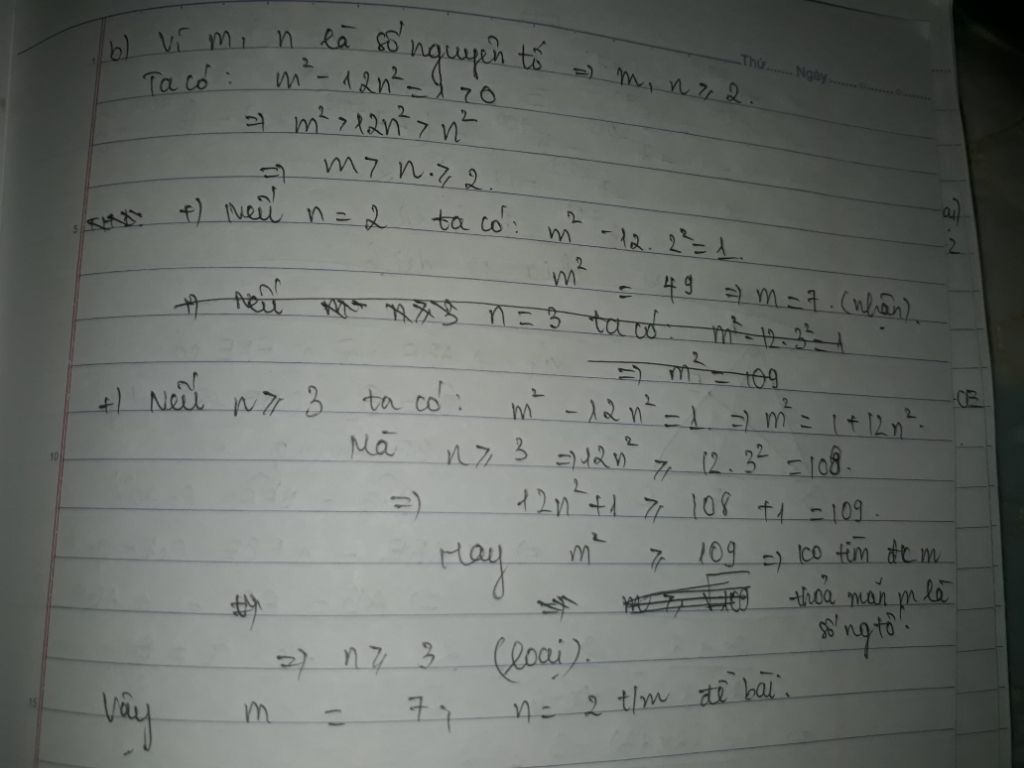 b) Vì m, n là số nguyên tố => m, n ≥ 2.
Thứ...... Ngày............
Ta có: m² - 12n² = 1 > 0
=> m² > 12n² > n²
=> m > n ≥ 2.
a)
+) Nếu n = 2 ta có: m² - 12. 2² = 1
2
5
m² = 49 => m = 7. (nhận).
+) Nếu n = 3 ta có: m² - 12. 3² = 1
=> m² = 109
+) Nếu n ≥ 3 ta có: m² - 12n² = 1 => m² = 1 + 12n².
Mà n ≥ 3 => 12n² ≥ 12. 3² = 108.
10
=> 12n² + 1 ≥ 108 + 1 = 109.
Hay m² ≥ 109 => ko tìm đc m
thỏa mãn m là
số ngtố.
=> n ≥ 3 (loại).
15
Vậy m = 7, n = 2 t/m đề bài.